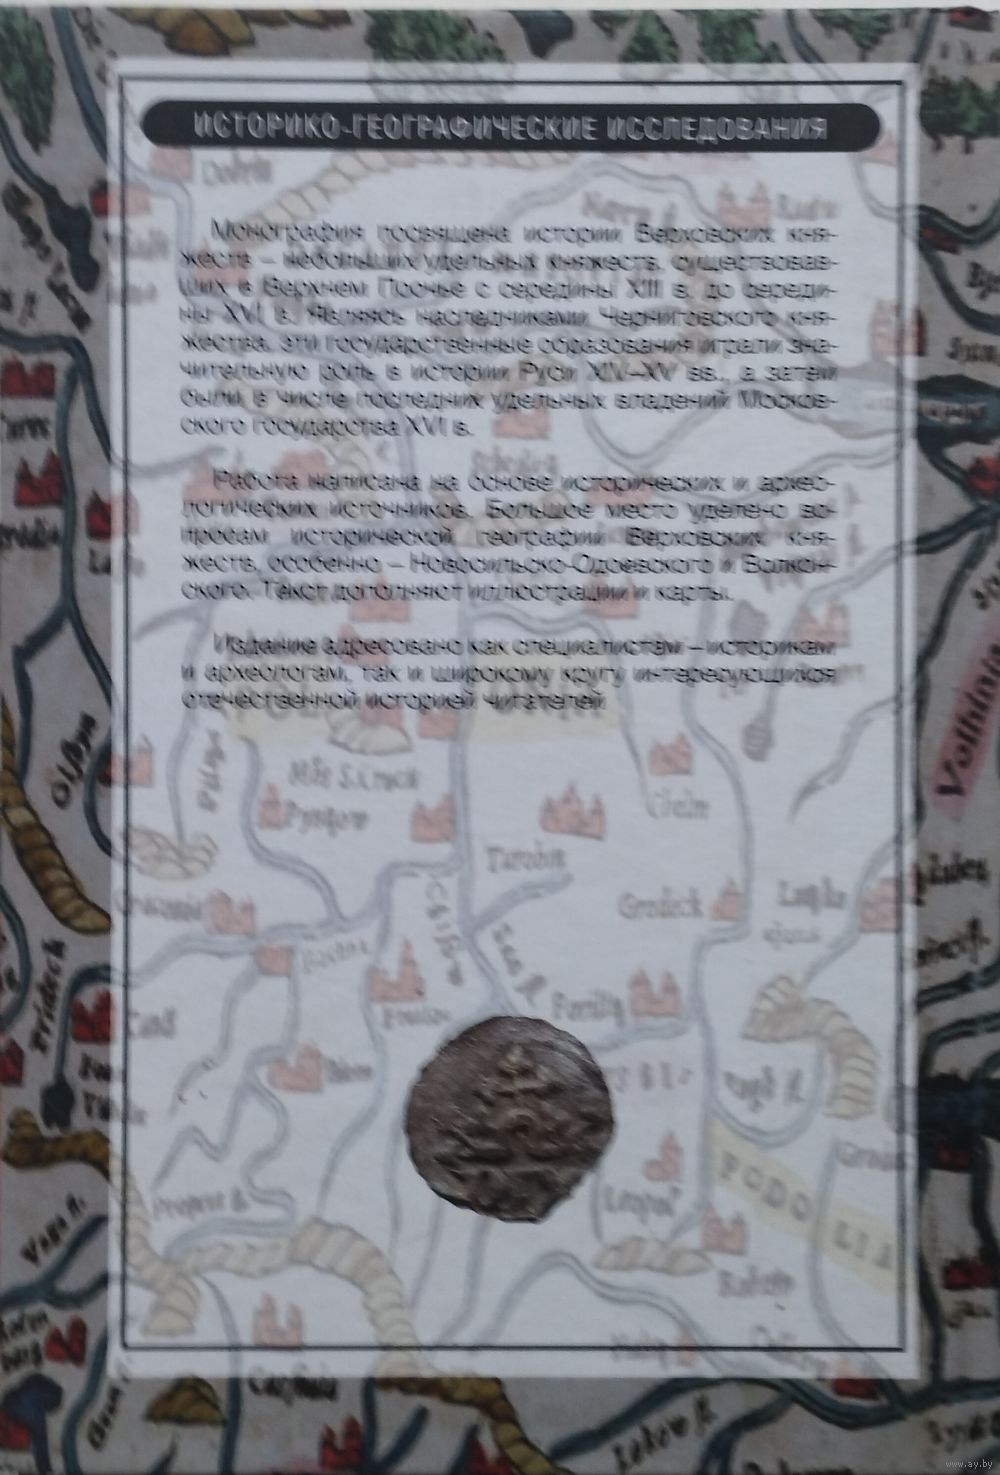 ИСТОРИКО-ГЕОГРАФИЧЕСКИЕ ИССЛЕДОВАНИЯ
Монография посвящена истории Верховских кня-
жеств – небольших удельных княжеств, существовав-
ших в Верхнем Поочье с середины XIII в. до середи-
ны XVI в. Являясь наследниками Черниговского кня-
жества, эти государственные образования играли зна-
чительную роль в истории Руси XIV–XV вв., а затем
были в числе последних удельных владений Москов-
ского государства XVI в.
Работа написана на основе исторических и архео-
логических источников. Большое место уделено во-
просам исторической географии Верховских кня-
жеств, особенно – Новосильско-Одоевского и Волкон-
ского. Текст дополняют иллюстрации и карты.
Издание адресовано как специалистам – историкам
и археологам, так и широкому кругу интересующихся
отечественной историей читателей.
Volhinia
Pilza
Chelm
Tarobin
Grodeck
San fl.
Prideck
PODOLIA
www.ay.by